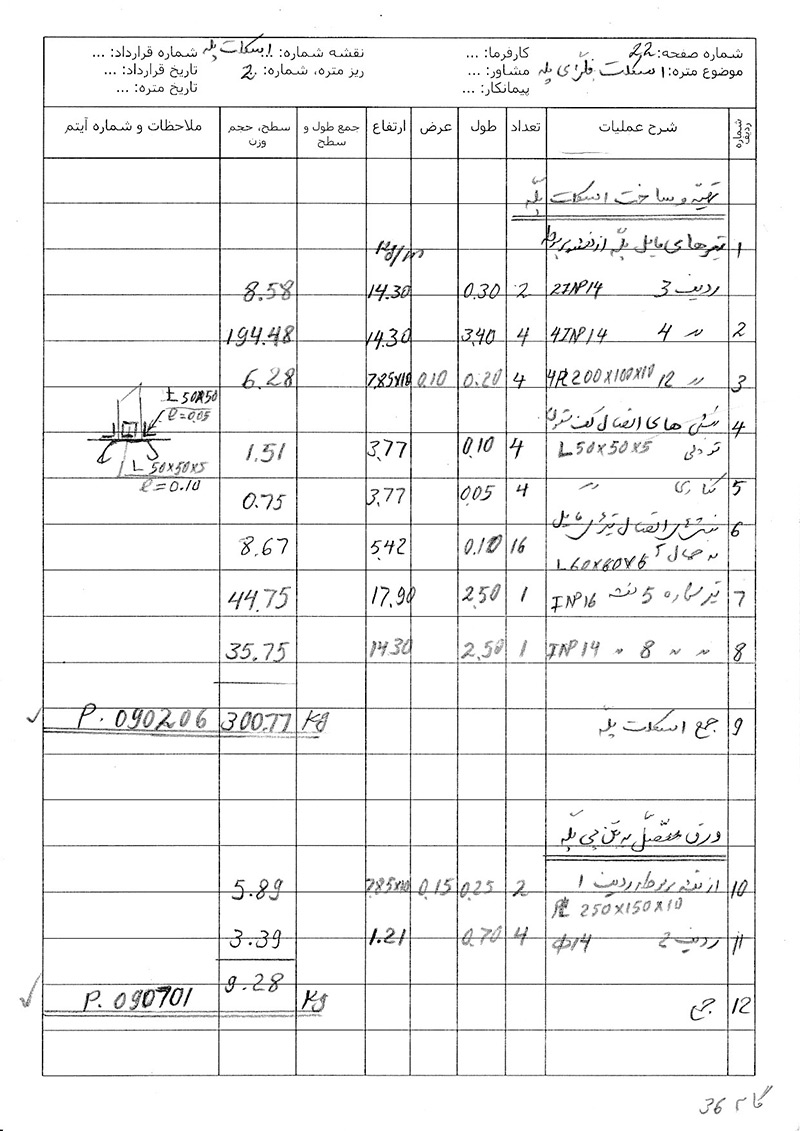 شماره صفحه: 22
کارفرما: ...
نقشه شماره: ... اسکلت پله
شماره قرارداد: ...
موضوع متره: اسکلت فلزی پله
مشاور: ...
ریز متره، شماره: 2
تاریخ قرارداد: ...
پیمانکار: ...
تاریخ متره: ...
شماره ردیف شرح عملیات تعداد طول عرض ارتفاع جمع طول و سطح سطح، حجم وزن ملاحظات و شماره آیتم
تهیه و ساخت اسکلت پله
1 تیرهای مایل پله از نقشه مربوطه
Kg/m
ردیف 3 2INP14 2 0.30 14.30 8.58
2 " 4 4INP14 4 3.40 14.30 194.48
3 " 12 4PL200X100X10 4 0.20 0.10 7.85X10 6.28
L 50X50
l=0.05
4 های اتصال کف ستون
L50X50X5 4 0.10 3.77 1.51
L 50X50X5
l=0.10
5 کناری " 4 0.05 3.77 0.75
6 نبشی اتصال تیرهای مایل
به حمال L60X60X6 16 0.10 5.42 8.67
7 تیر شماره 5 نقشه INP16 1 2.50 17.90 44.75
8 " " 8 " INP14 1 2.50 14.30 35.75
9 جمع اسکلت پله Kg 300.77 P. 090206
ورق متصل به بتن پی پله
10 از نقشه مربوطه ردیف 1
PL 250X150X10 2 0.25 0.15 7.85X10 5.89
11 ردیف 2 Φ14 4 0.70 1.21 3.39
12 جمع Kg 9.28 P. 090701
گام 36